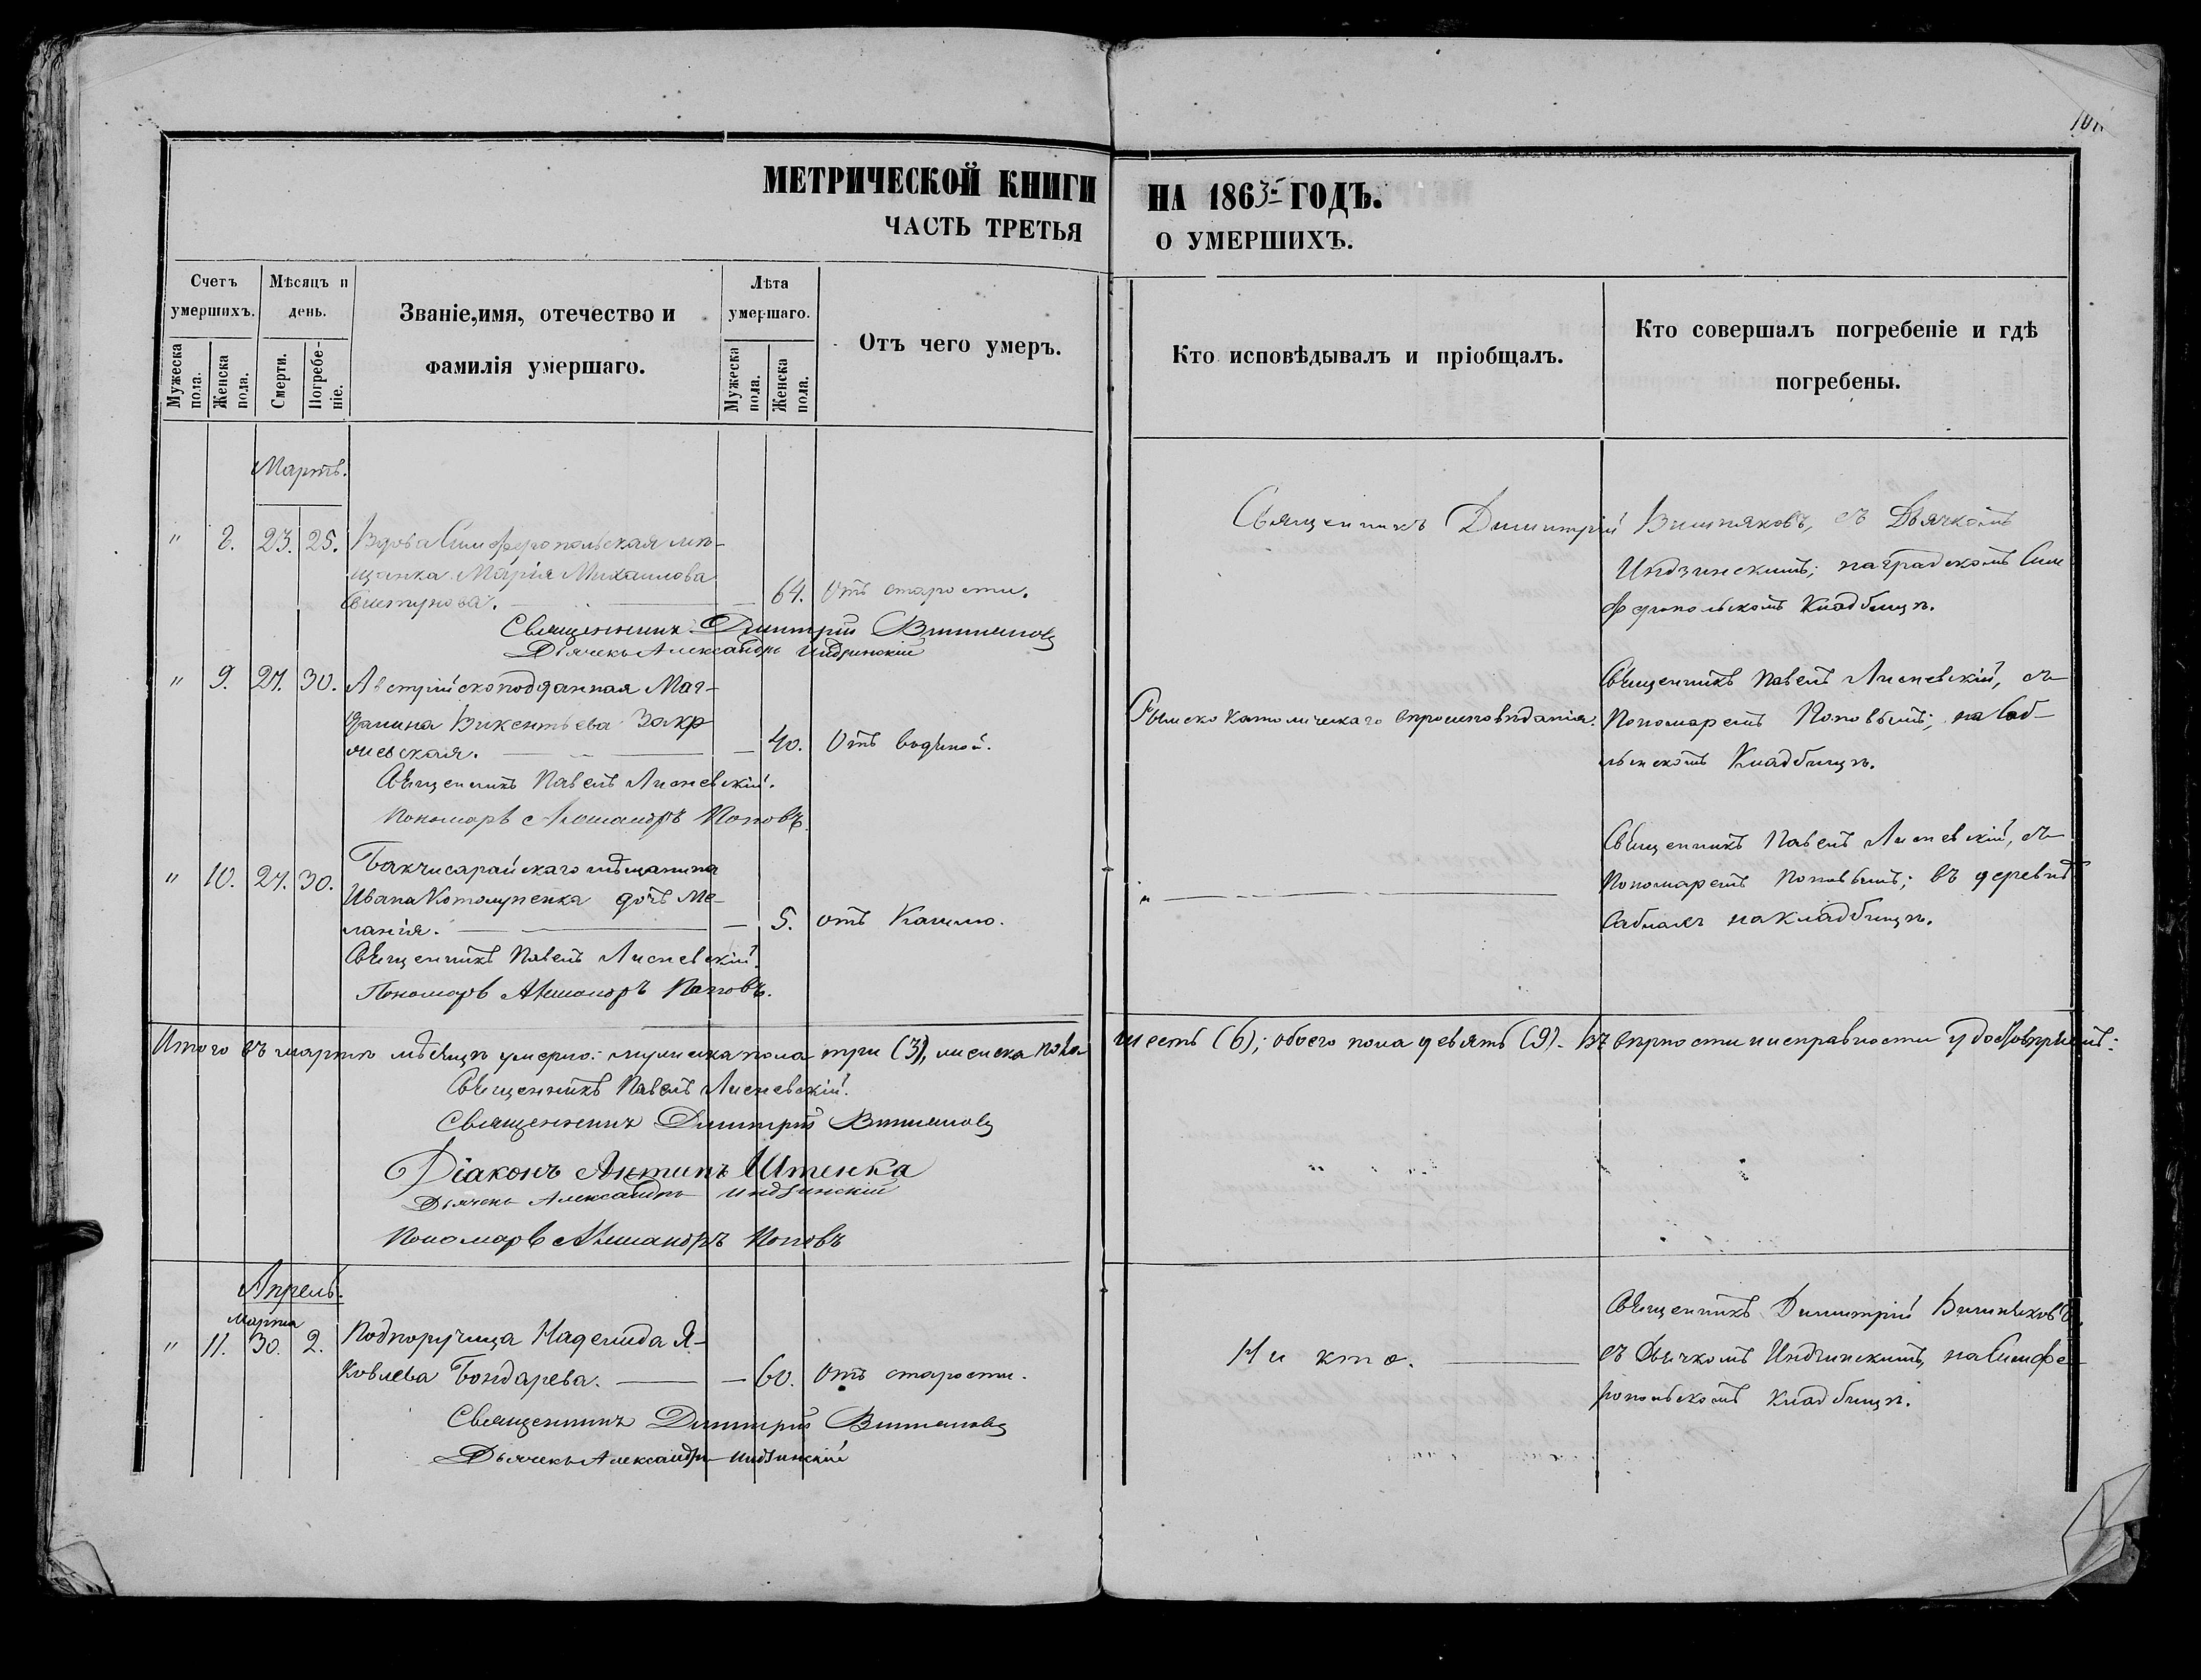 МЕТРИЧЕСКОЙ КНИГИ НА 1863й ГОДЪ.
ЧАСТЬ ТРЕТЬЯ О УМЕРШИХЪ.
Счетъ умершихъ.
Мужеска пола.
Женска пола.
Мѣсяцъ и день.
Смерти.
Погребеніе.
Званіе, имя, отечество и фамилія умершаго.
Лѣта умершаго.
Мужеска пола.
Женска пола.
Отъ чего умеръ.
Кто исповѣдывалъ и пріобщалъ.
Кто совершалъ погребеніе и гдѣ погребены.
Мартъ.
" 8. 23. 25. Вдова Симферопольская мѣ-
щанка Марія Михаилова
64. Отъ старости.
Священникъ Димитрій Вишняковъ, съ Дьячкомъ
Индзинскимъ; на градскомъ Сим
феропольскомъ Кладбищѣ.
Священникъ Димитрій Вишняковъ
Дьячекъ Александръ Индзинскій
" 9. 27. 30. Австрійскоподданная Маг-
далина Викентьева Закр
жевская. 40. Отъ водяной.
Римско Католическаго вѣроисповѣданія.
Священникъ Павелъ Лисневскій, съ
Пономаремъ Поповымъ; на Саб-
лынскомъ Кладбищѣ.
Священникъ Павелъ Лисневскій.
Пономарь Александръ Поповъ.
" 10. 27. 30. Бахчисарайскаго мѣщанина
Ивана Котолупенка дочь Ме-
ланія. 5. отъ Кашлю.
"
Священникъ Павелъ Лисневскій, съ
Пономаремъ Поповымъ; въ деревнѣ
Саблахъ на кладбищѣ.
Священникъ Павелъ Лисневскій.
Пономарь Александръ Поповъ.
Итого въ мартѣ мѣсяцѣ умерло: мужеска пола три (3), женска пола шесть (6); обоего пола девять (9). Въ вѣрности и исправности удостовѣряемъ:
Священникъ Павелъ Лисневскій.
Священникъ Димитрій Вишняковъ
Діаконъ Антипъ Штенка
Дьячекъ Александръ Индзинскій
Пономарь Александръ Поповъ
Апрель.
Марта
" 11. 30. 2. Подпоручица Надежда Я-
ковлева Бондарева. 60. Отъ старости.
Ни кто.
Священникъ Димитрій Вишняковъ,
съ Дьячкомъ Индзинскимъ, на Симфе-
ропольскомъ кладбищѣ.
Священникъ Димитрій Вишняковъ
Дьячекъ Александръ Индзинскій